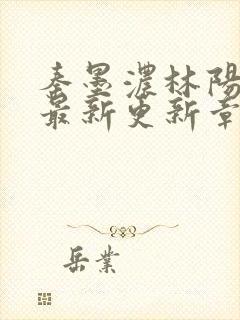 秦墨濃林陽
最新更新章
岳業